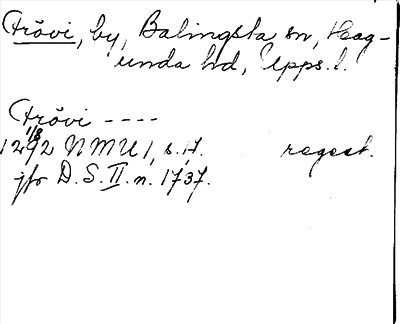 Frövi, by, Balingsta sn, Hag-
unda hd, Upps. l.
Frövi ----
1/8
1292 NMU 1, s. 17. regest.
jfr D.S. II. n. 1737.